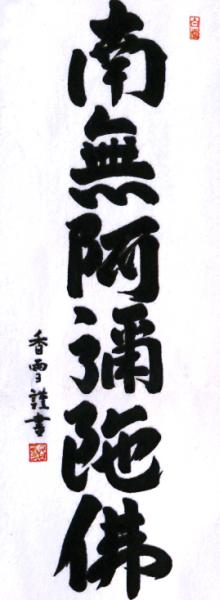 南無阿彌陀佛
香雪謹書